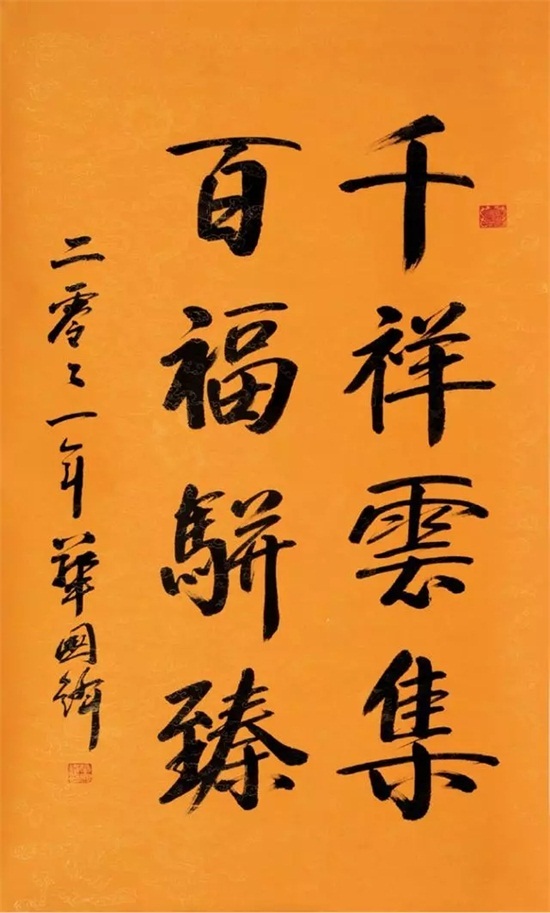 千祥雲集
百福駢臻
二零〻一年華國鋒